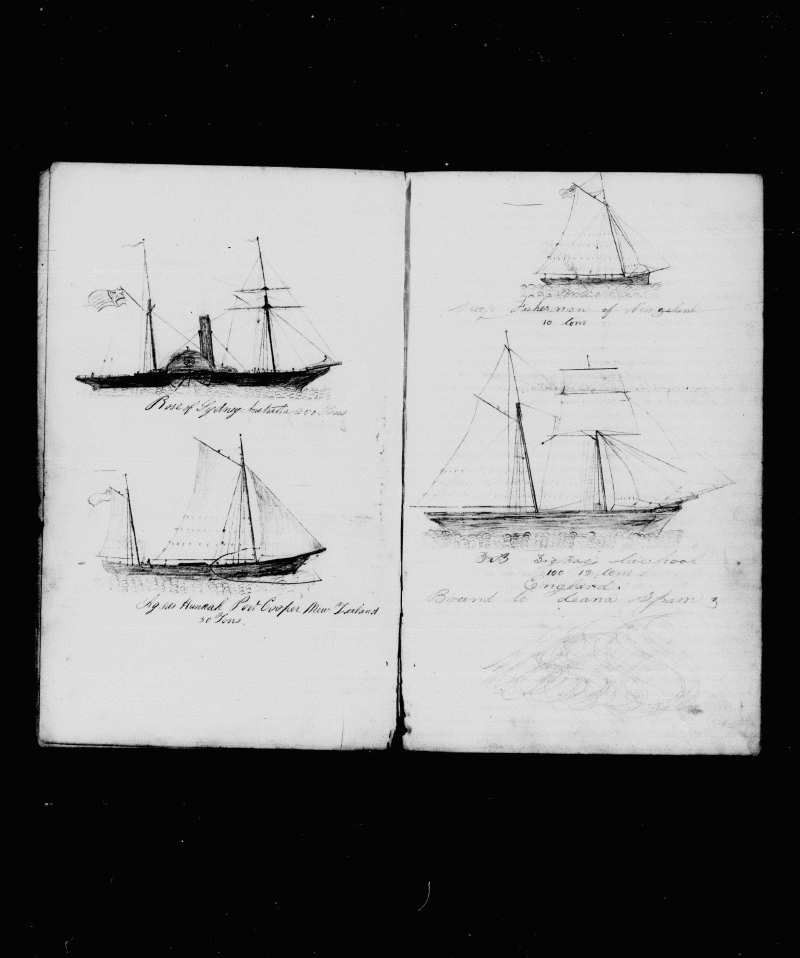 Rose of Sydney Australia 200 Tons
Agnes Hannah Port Cooper New Zealand
30 Tons.
Sloop Fisherman of
10 tons
Zig Zag Liverpool
100 19 tons
England.
Bound to Spain